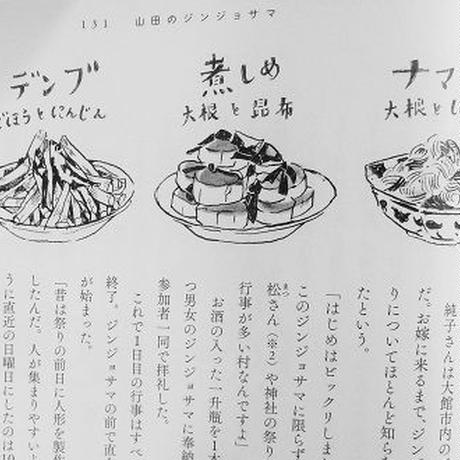 131 山田のジンジョサマ
デンブ
ごぼうとにんじん
煮しめ
大根と昆布
ナマ
大根と
純子さんは大館市内の
だ。お嫁に来るまで、ジン
りについてほとんど知らな
たという。
「はじめはビックリしまし
このジンジョサマに限らず
松さん(※2)や神社の祭り
行事が多い村なんですよ」
お酒の入った一升瓶を1本
つ男女のジンジョサマに奉納
参加者一同で拝礼した。
これで1日目の行事はすべ
終了。ジンジョサマの前で直
が始まった。
「昔は祭りの前日に人形を製作
したんだ。人が集まりやすい
うに直近の日曜日にしたのは10